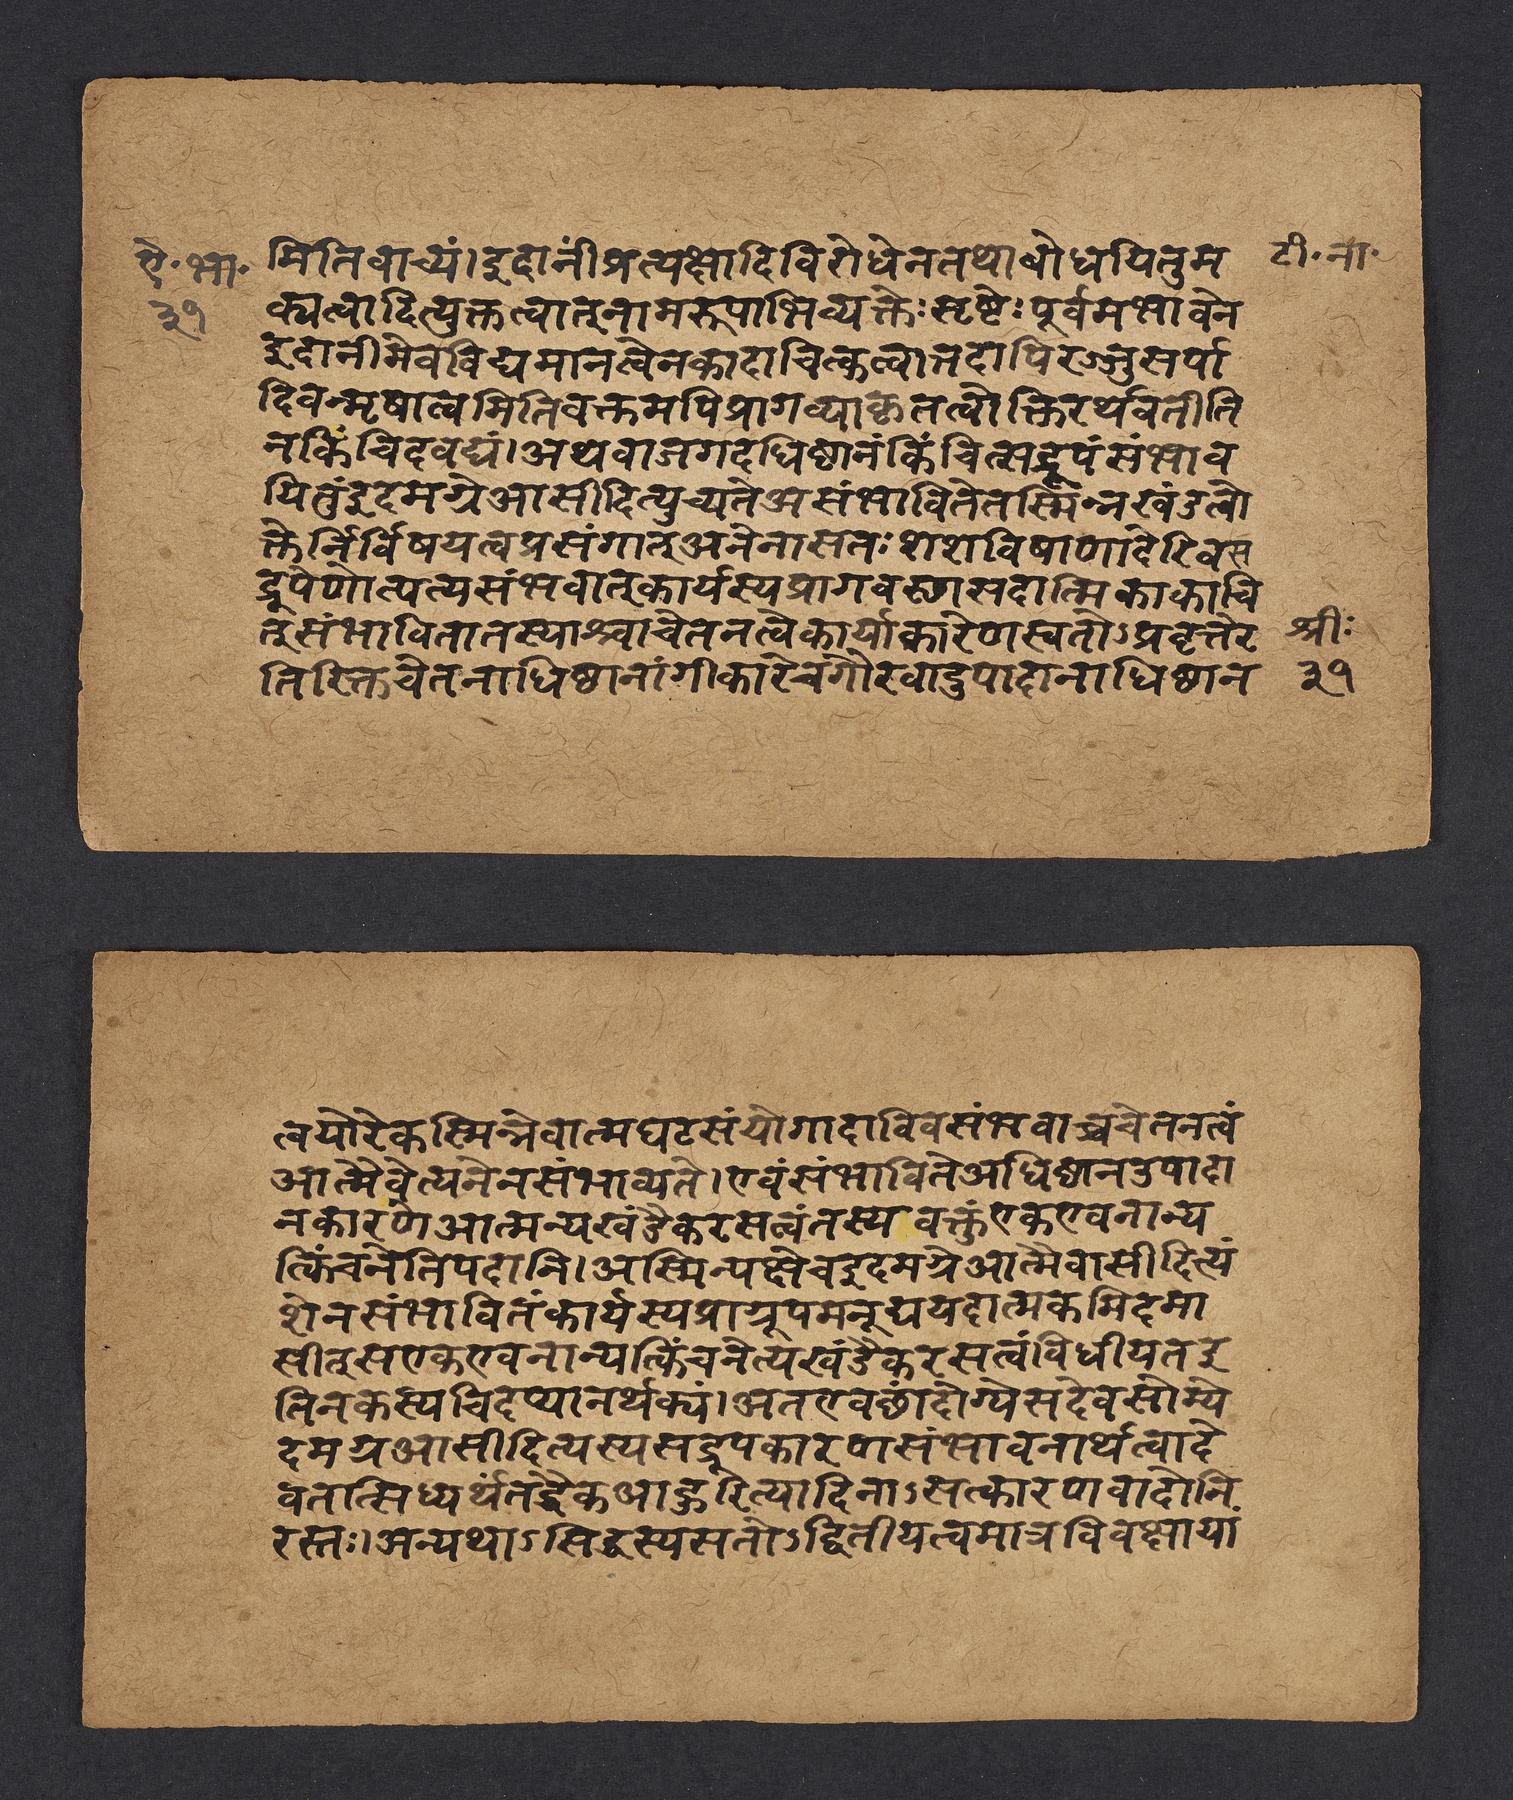 ऐ॰ भा॰
३१
टी॰ ना॰
मितिवाच्यं।इदानींप्रत्यक्षादिविरोधेनतथाबोधयितुम
क्यत्वादित्युक्तत्वात्नामरूपाभिव्यक्तेःसृष्टेःपूर्वमभावेन
इदानीमेवविद्यमानत्वेनकादाचित्कत्वान्नदापिरज्जुसर्पा
दिवन्मृषात्वमितिवक्तमपिप्रागव्याकृतत्वोक्तिरर्थवतीति
नकिंचिदवद्यं।अथवाजगदधिष्ठानंकिंचित्सद्रूपंसंभाव
यितुंइदमग्रेआसीदित्युच्यतेअसंभावितेतस्मिन्नखंडत्वो
क्तेर्निर्विषयत्वप्रसंगात्अनेनासतःशशविषाणादेरिवस
द्रूपेणोत्पत्यसंभवात्कार्यस्यप्रागवस्थासदात्मिकाकाचि
त्संभावितातस्याश्चाचेतनत्वेकार्याकारेणस्वतोऽप्रवृत्तेर
तिरिक्तचेतनाधिष्ठानांगीकारेचगौरवादुपादानाधिष्ठान
श्रीः
३१
त्वयोरेकस्मिन्नेवात्मघटसंयोगादाविवसंभवाच्चचेतनत्वं
आत्मैवेत्यनेनसंभाव्यते।एवंसंभावितेअधिष्ठानउपादा
नकारणेआत्मन्यखंडैकरसत्वंतस्य वक्तुंएकएवनान्य
त्किंचनेतिपदानि।अस्मिन्पक्षेचइदमग्रेआत्मैवासीदित्यं
शेनसंभावितंकार्यस्यप्राग्रूपमनूद्ययदात्मकमिदमा
सीत्सएकएवनान्यत्किंचनेत्यखंडैकरसत्वंविधीयतइ
तिनकस्यचिदप्यानर्थक्यं।अतएवछांदोग्येसदेवसोम्ये
दमग्रआसीदित्यस्यसद्रूपकारणसंभावनार्थत्वादे
वतत्सिध्यर्थंतद्धैकआहुरित्यादिनाऽसत्कारणवादोनि
रस्तः।अन्यथाऽसिद्धस्यसतोऽद्वितीयत्वमात्रविवक्षायां